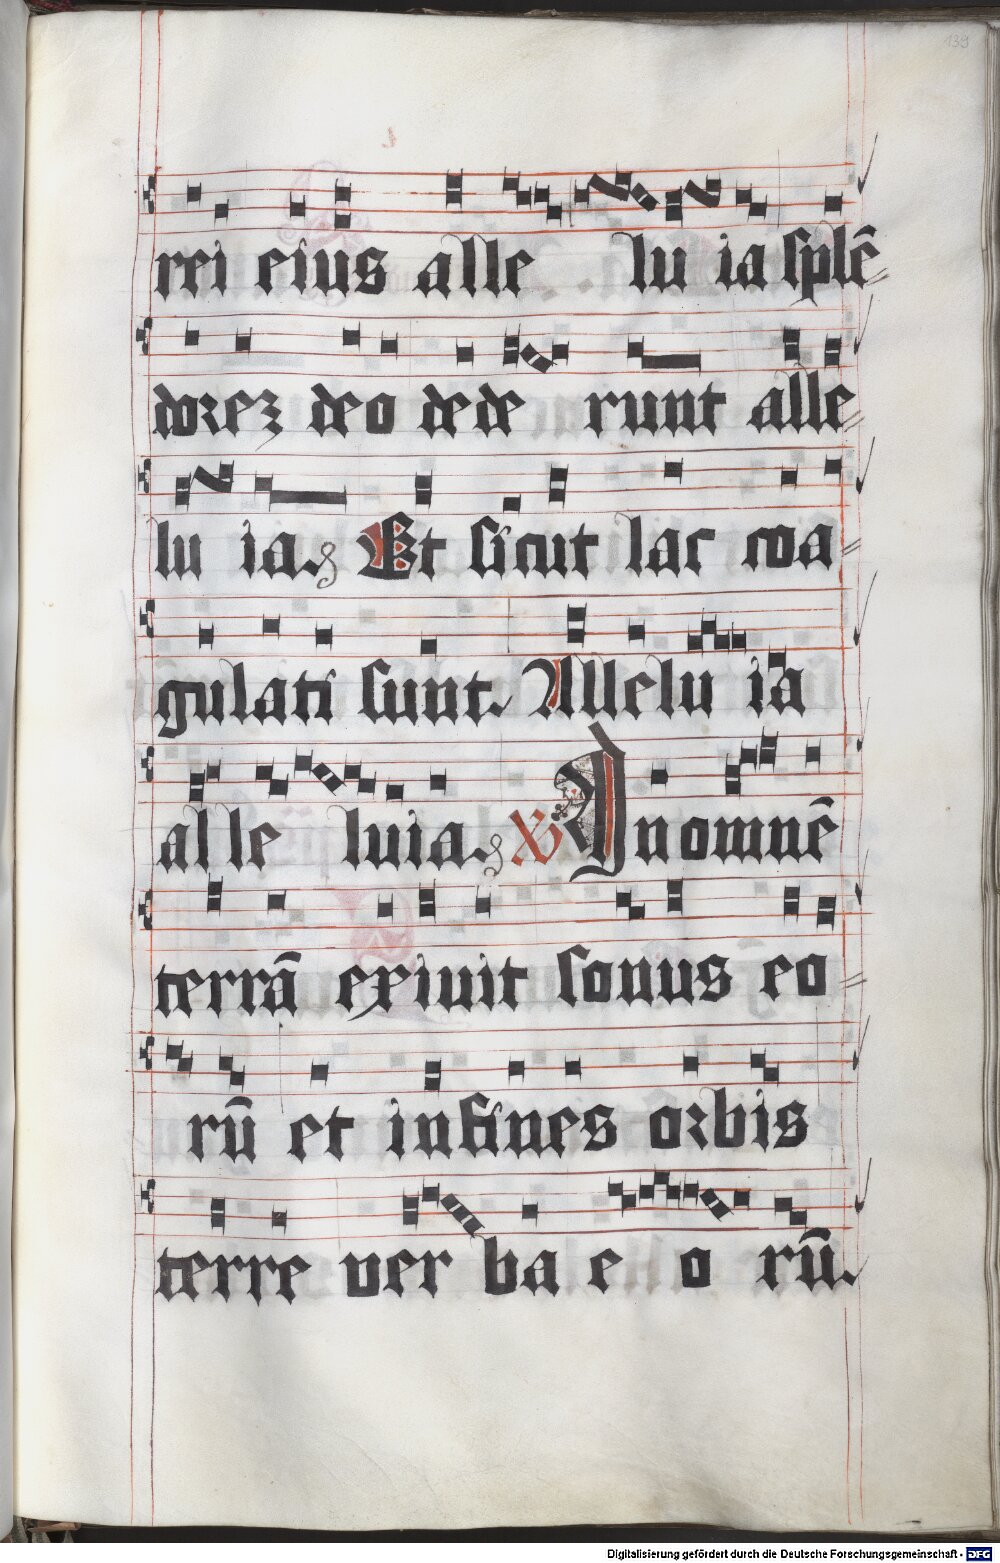 139
rei eius alle lu ia splē
dorez deo dede runt alle
lu ia. Et sicut lac coa
gulati sunt. Allelu ia
alle luia. V In omnē
terrā exivit sonus eo
rū et in fines orbis
terre ver ba e o rū.
Digitalisierung gefördert durch die Deutsche Forschungsgemeinschaft - DFG